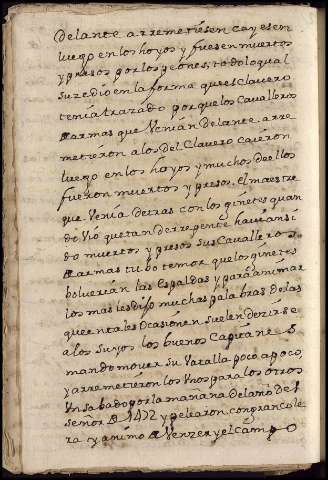 delante arremetiesen cayesen
luego en los hoyos y fuesen muertos
y presos por los peones, todo lo qual
sucedio en la forma que el Clavero
tenia trazado porque los Cavalleros
de armas que Venian delante arre
metieron a los del Clavero cayeron
luego en los hoyos y muchos de ellos
fueron muertos y presos. el maestre
que Venia detras con los ginetes quan
do Vio que tan de rrepente havian si
do muertos y presos sus Cavalleros
de armas tubo temor que los ginetes
bolverian las espaldas y para animar
los mas les dijo muchas palabras de las
que en tales Ocasiones suelen decirse
a los suyos los buenos Capitanes
mando mover su Vatalla poco a poco,
y arremetieron los Unos para los otros
Un sabado por la mañana del año del
señor de 1472 y pelearon con gran cole
ra y animo de Venzer y el Campo